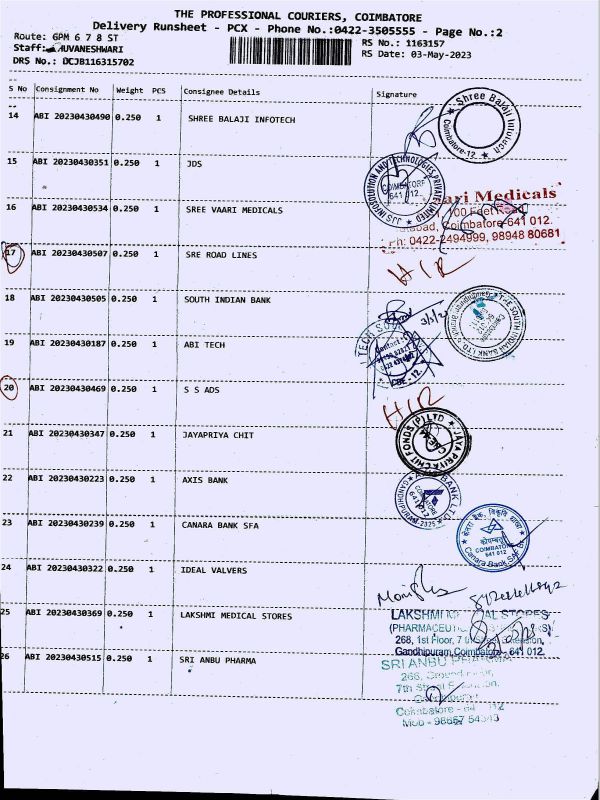 THE PROFESSIONAL COURIERS, COIMBATORE
Delivery Runsheet - PCX - Phone No.:0422-3505555 - Page No.:2
Route: GPM 6 7 8 ST
RS No.: 1163157
Staff: HUVANESHWARI
RS Date: 03-May-2023
DRS No.: DCJB116315702
S No Consignment No Weight PCS Consignee Details Signature
14 ABI 20230430490 0.250 1 SHREE BALAJI INFOTECH
Shree Balaji Infotech
Coimbatore-12
15 ABI 20230430351 0.250 1 JDS
COIMBATORE
641 012.
16 ABI 20230430534 0.250 1 SREE VAARI MEDICALS
ari Medicals
100 Feet Road
Coimbatore-641 012.
Ph: 0422-2494999, 98948 80681
17 ABI 20230430507 0.250 1 SRE ROAD LINES
HIR
18 ABI 20230430505 0.250 1 SOUTH INDIAN BANK
THE SOUTH INDIAN BANK LTD
19 ABI 20230430187 0.250 1 ABI TECH
TECH SO
CBE-12.
20 ABI 20230430469 0.250 1 S S ADS
HIR
21 ABI 20230430347 0.250 1 JAYAPRIYA CHIT
JAYA PRIYA CHIT FONDS (P) LTD
22 ABI 20230430223 0.250 1 AXIS BANK
BANK LTD
COIMBATORE
641012
GANDHIPURAM
23 ABI 20230430239 0.250 1 CANARA BANK SFA
कोयम्बत्तूर
COIMBATORE
641 012
Canara Bank
24 ABI 20230430322 0.250 1 IDEAL VALVERS
25 ABI 20230430369 0.250 1 LAKSHMI MEDICAL STORES
LAKSHMI AL STORES
(PHARMACEUTIC
268, 1st Floor, 7
Gandhipuram, Coimbatore - 641 012.
26 ABI 20230430515 0.250 1 SRI ANBU PHARMA
SRI ANBU PHARMA
266, Ground
7th Street
Coimbatore - 64 12
Mob - 98657 54343